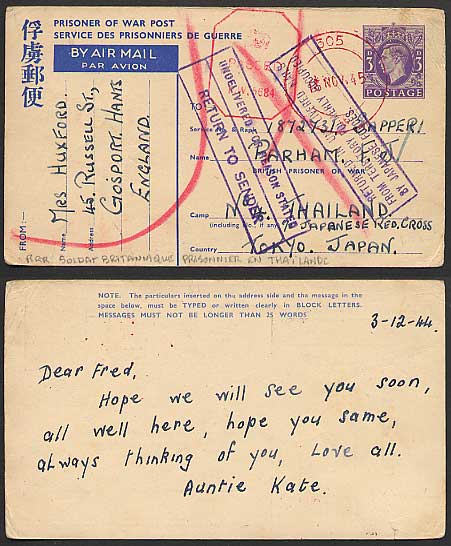 PRISONER OF WAR POST
SERVICE DES PRISONNIERS DE GUERRE
俘虜郵便
BY AIR MAIL
PAR AVION
FROM:—
Name MRS HUXFORD.
Address 45, RUSSELL ST.,
GOSPORT. HANTS
ENGLAND.
PASSED
P.W. 5684
605
NOV. 45
3D 3D
POSTAGE
UNDELIVERED FOR REASON STATED
RETURN TO SENDER
TO
Service No. & Rank 18724312 SAPPER.
BRITISH PRISONER OF WAR
Camp THAILAND.
(including No., if any) JAPANESE RED CROSS
Country TOKYO. JAPAN.
SOLDAT BRITANNIQUE PRISONNIER EN THAILANDE
NOTE. The particulars inserted on the address side and the message in the
space below, must be TYPED or written clearly in BLOCK LETTERS.
MESSAGES MUST NOT BE LONGER THAN 25 WORDS
3-12-44.
Dear Fred,
Hope we will see you soon,
all well here, hope you same,
always thinking of you, Love all.
Auntie Kate.